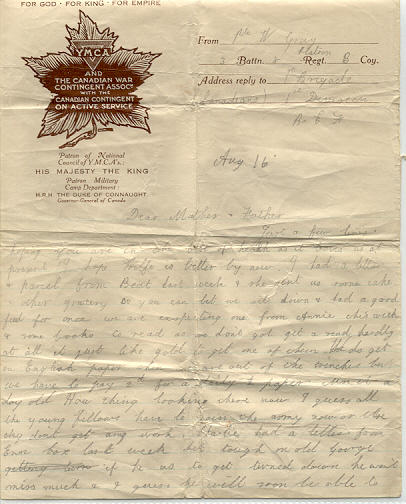 FOR GOD · FOR KING · FOR EMPIRE
YMCA
AND
THE CANADIAN WAR
CONTINGENT ASSOCN
WITH THE
CANADIAN CONTINGENT
ON ACTIVE SERVICE
Patron of National
Council of Y.M.C.A's.:
HIS MAJESTY THE KING
Patron Military
Camp Department:
H.R.H. THE DUKE OF CONNAUGHT
Governor-General of Canada
From Pte W Gray
Platoon
3 Battn. Regt. B Coy.
Address reply to 1st Brigade
Canadians 1st Division
B. E. F
Aug 16
Dear Mother & Father
Just a few lines
hoping you are in the best of health as it leaves us at
present I hope is better by now I had a letter
& parcel from Beat last week & she sent us some cake
& other grocery So you can bet we sit down & had a good
feed for once we are expecting one from Annie this week
& some books to read as we dont get a read hardly
at all it just like gold to get one of them We do get
an English paper when we are out of the trenches but
we have to pay 2d for a penny paper & that a
day old How thing looking there now I guess all
the young fellows have to join the army now or else
they dont get any work had a letter from
last week his tough on old George
getting if he is to get turned down he wont
miss much & I guess he will soon be able to